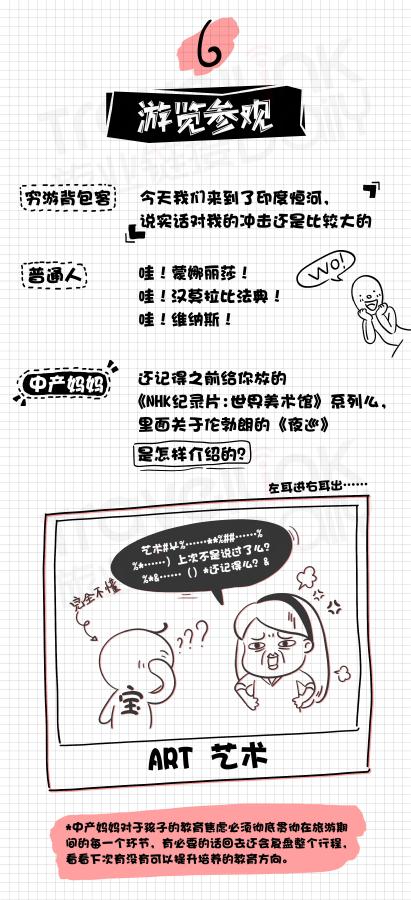 6
游览参观
穷游背包客
今天我们来到了印度恒河，
说实话对我的冲击还是比较大的
普通人
哇！蒙娜丽莎！
哇！汉莫拉比法典！
哇！维纳斯！
WO!
中产妈妈
还记得之前给你放的
《NHK纪录片：世界美术馆》系列么，
里面关于伦勃朗的《夜巡》
是怎样介绍的？
左耳进右耳出……
艺术#从%……**%##……%
%*……）上次不是说过了么？
%*&……（）*还记得么？&
完全不懂
???
宝
ART 艺术
*中产妈妈对于孩子的教育焦虑必须彻底贯彻在旅游期
间的每一个环节，有必要的话回去还会复盘整个行程，
看看下次有没有可以提升培养的教育方向。